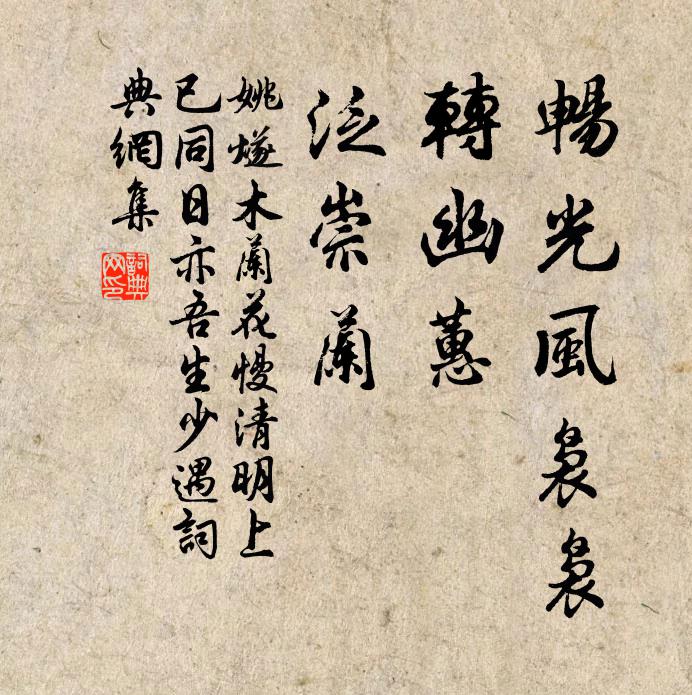 暢光風裊裊
轉幽蕙
泛崇蘭
姚燧木蘭花慢清明上
已同日亦吾生少遇詞
典網集
詞典網印